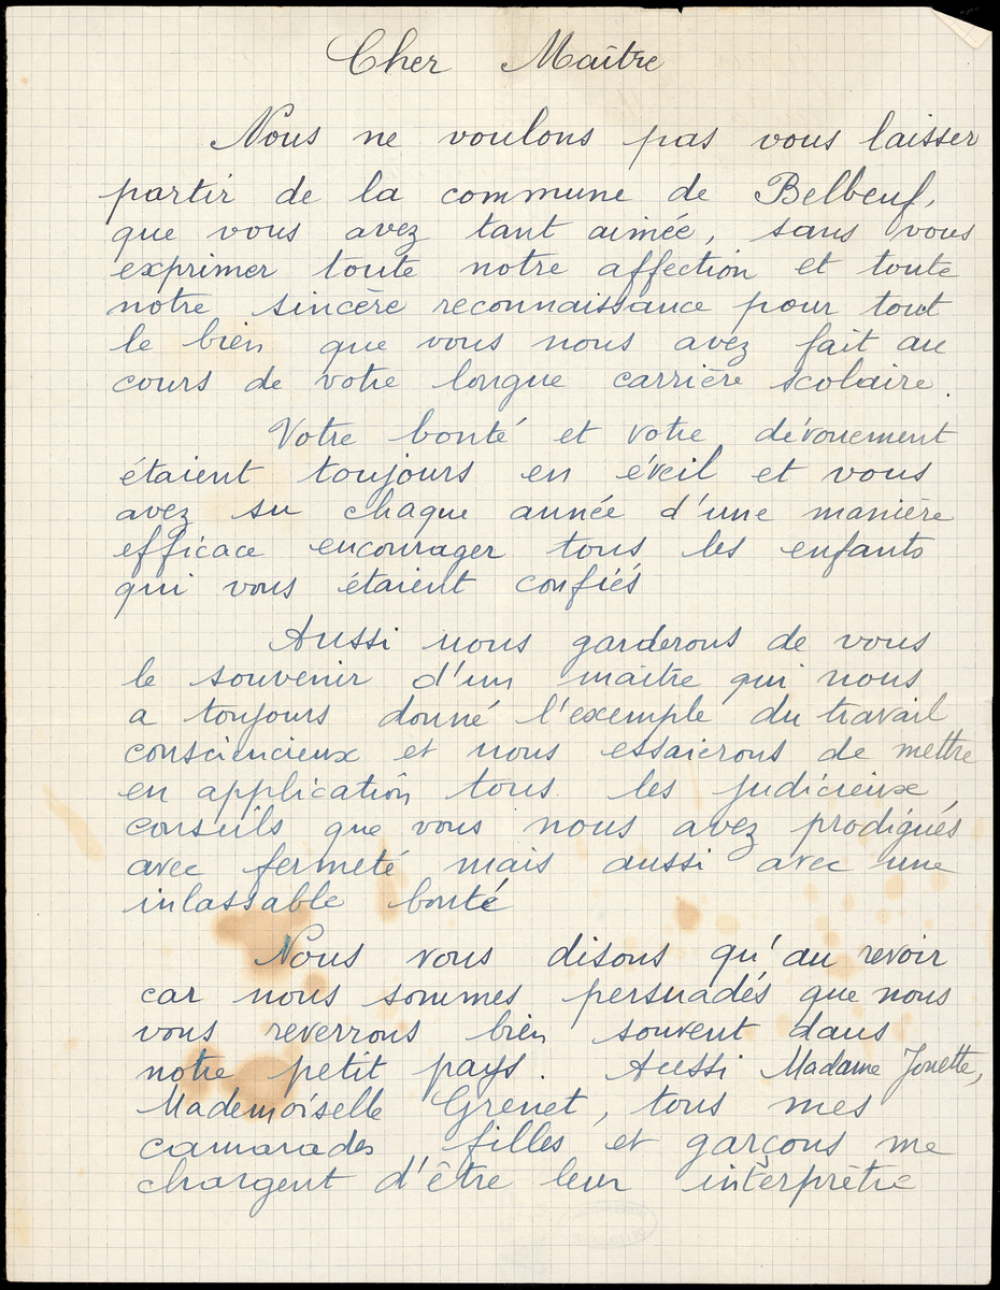 Cher Maître
Nous ne voulons pas vous laisser
partir de la commune de Belbeuf,
que vous avez tant aimée, sans vous
exprimer toute notre affection et toute
notre sincère reconnaissance pour tout
le bien que vous nous avez fait au
cours de votre longue carrière scolaire.
Votre bonté et votre dévouement
étaient toujours en éveil et vous
avez su chaque année d'une manière
efficace encourager tous les enfants
qui vous étaient confiés
Aussi nous garderons de vous
le souvenir d'un maitre qui nous
a toujours donné l'exemple du travail
consciencieux et nous essaierons de mettre
en application tous les judicieux,
conseils que vous nous avez prodigués
avec fermeté mais aussi avec une
inlassable bonté
Nous vous disons qu'au revoir
car nous sommes persuadés que nous
vous reverrons bien souvent dans
notre petit pays. Aussi Madame Jouette,
Mademoiselle Grenet, tous mes
camarades filles et garçons me
chargent d'être leur interprète